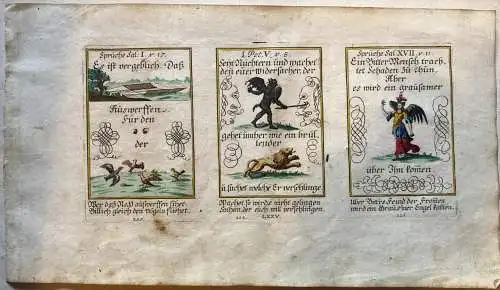 Sprüche Sal. I. v. 17.
Es ist vergeblich. Daß
Auswerffen
Für den
der
Wer daß Netz auswerffen sihet,
Billich gleich den Vögeln fliehet.
I. Pet. V. v. 8.
Seyt Nüchtern und wachet
den euer Widersacher, der
gehet umher wie ein brül,
lender
u suchet welche Er verschlinge
Wachet so wirds nicht gelingen
Feinden, der euch will verschlingen.
LXXV.
Sprüche Sal. XVII. v. 11.
Ein Bitter Mensch trach,
tet Schaden Zu thun,
Aber
es wird ein grausamer
über Ihn komen
Wer Beths Feind der Frommen
wird ein Engel